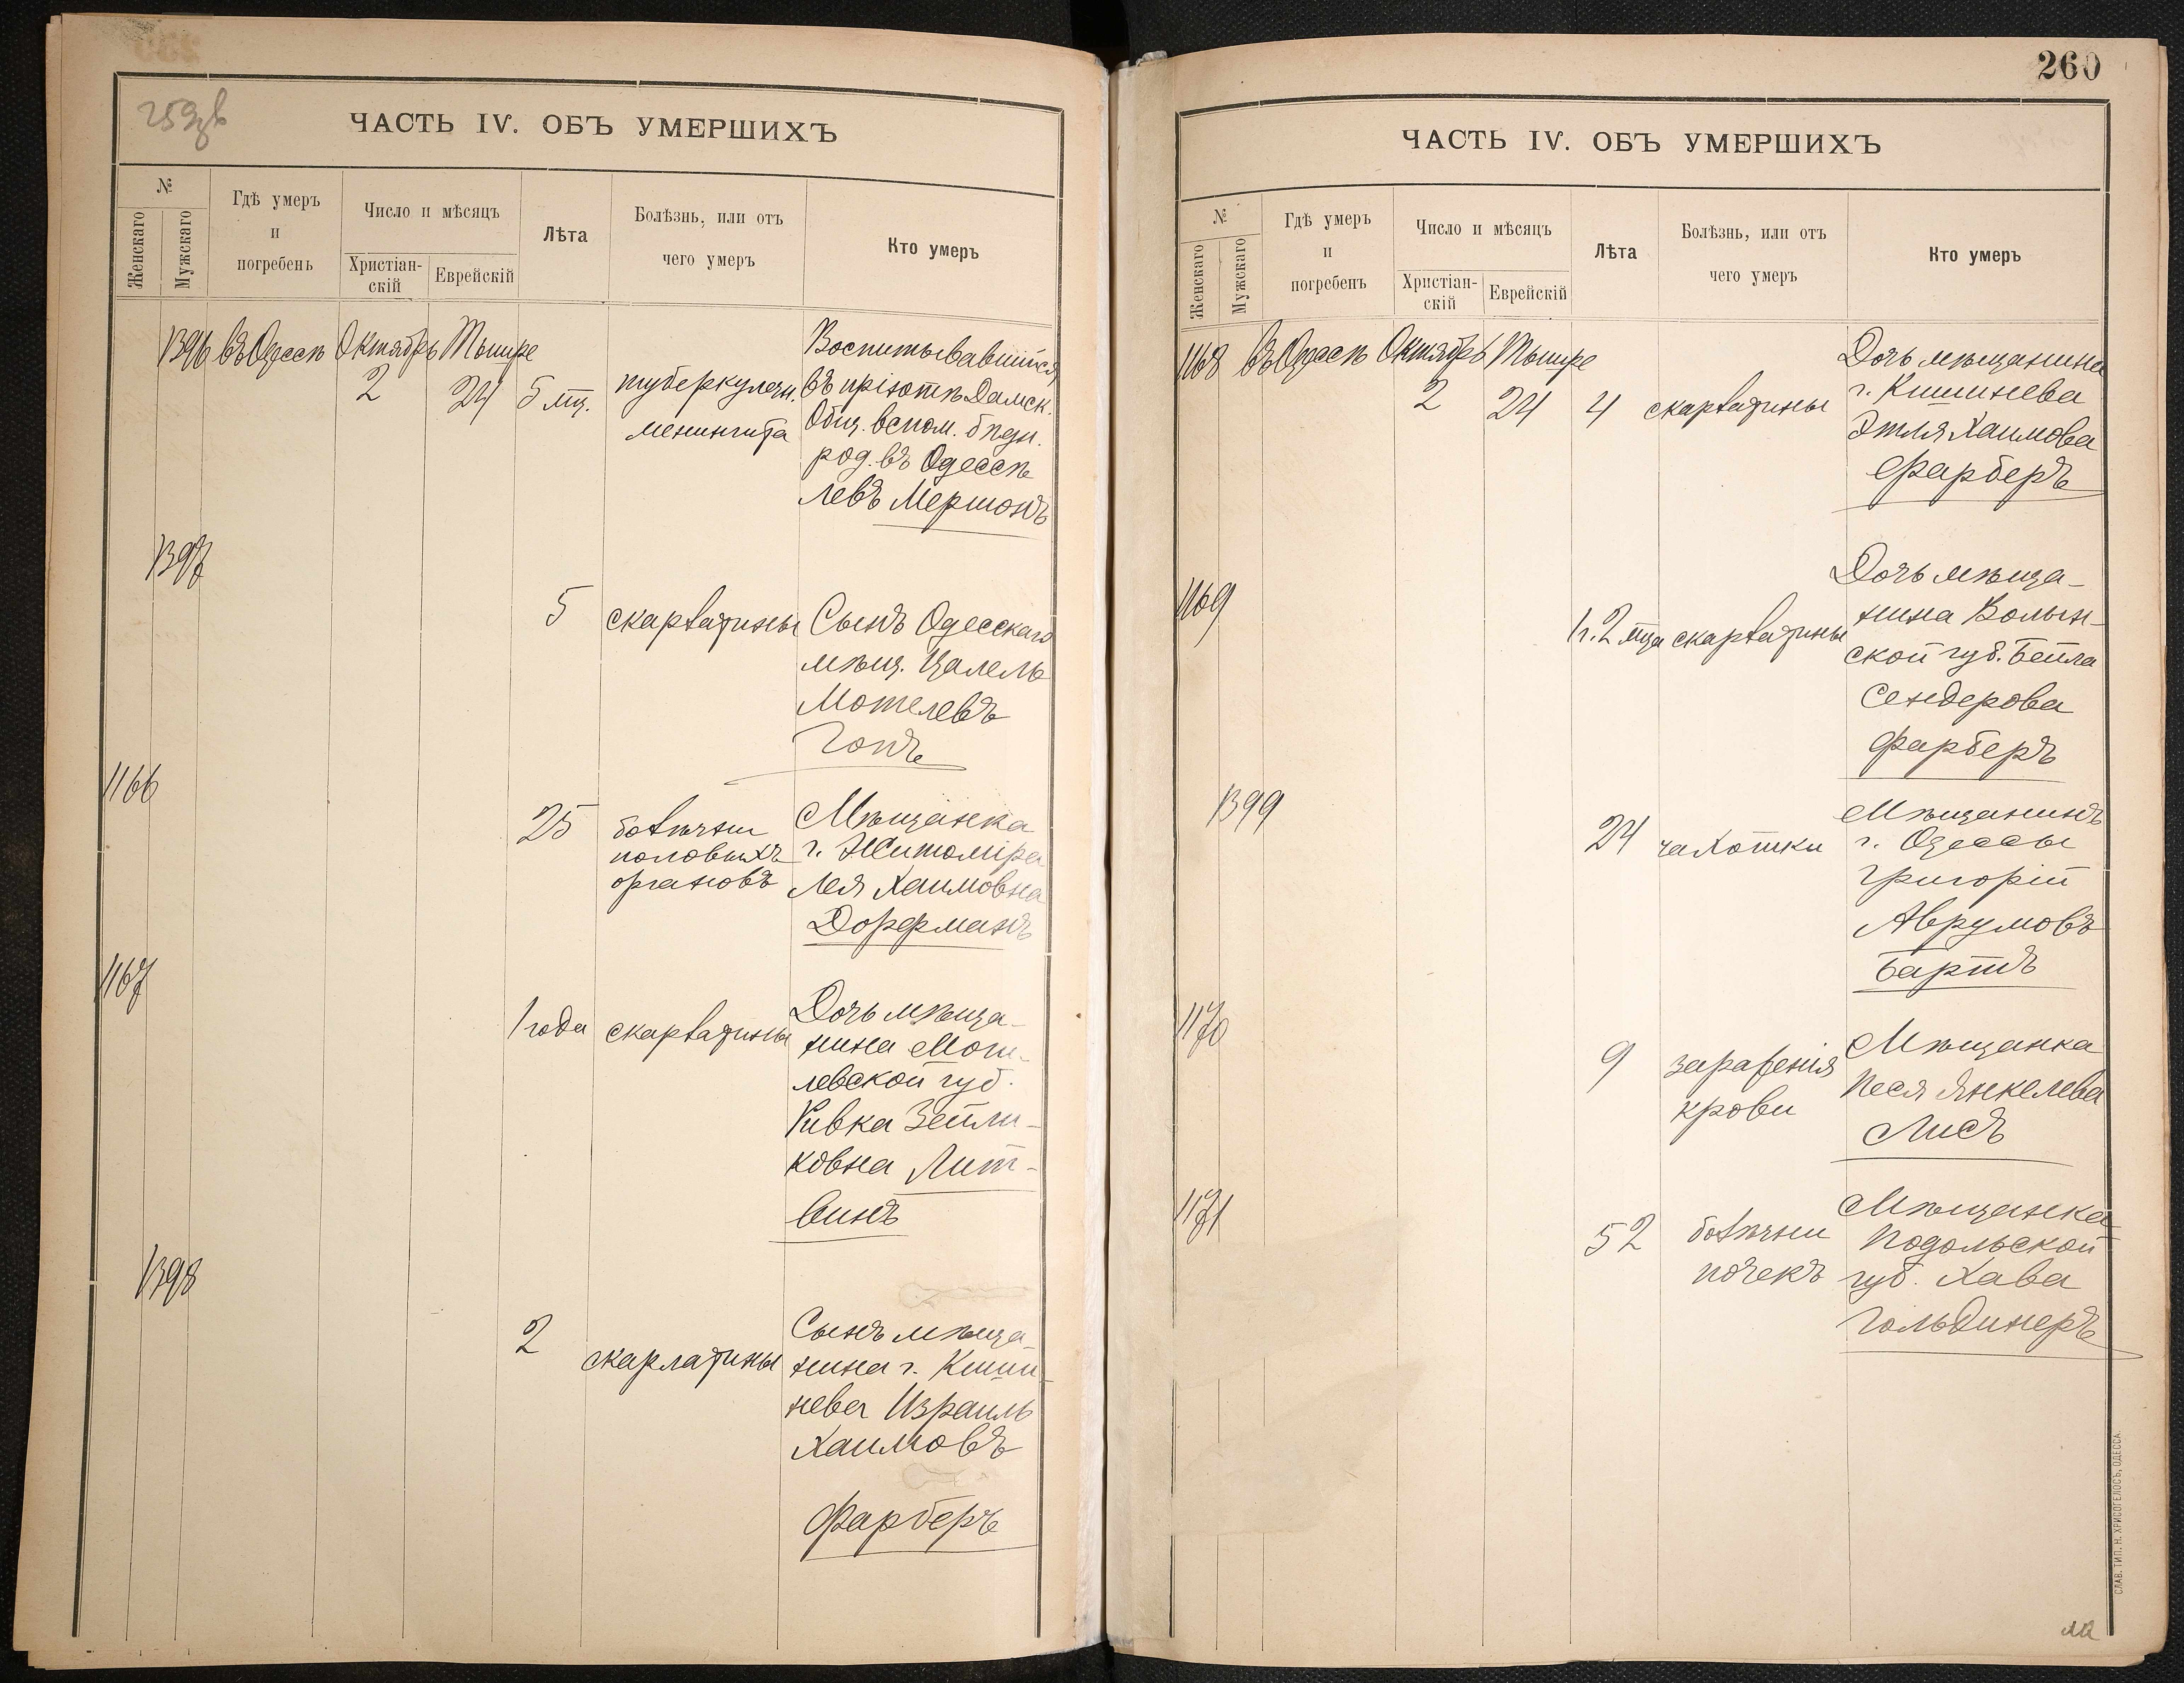 ЧАСТЬ IV. ОБЪ УМЕРШИХЪ
№
Женскаго
Мужскаго
Гдѣ умеръ
и
погребенъ
Число и мѣсяцъ
Христіан-
скій
Еврейскій
Лѣта
Болѣзнь, или отъ
чего умеръ
Кто умеръ
1396 въ Одессѣ Октябрь Тышре
2 24 5 мц.
туберкулезн.
менингита
Воспитывавшійся
въ пріютѣ Дамск.
Общ. вспом. бѣдн.
род. въ Одессѣ
Левъ Мершонъ
1397
5 скарлатины
Сынъ Одесскаго
мѣщ. Цалель
Мотелевъ
Гопъ
1166
25
болѣзни
половыхъ
органовъ
Мѣщанка
г. Житоміра
Лея Хаимовна
Дорфманъ
1167
1 года скарлатины
Дочь мѣща-
нина Моги-
левской губ.
Ривка Зейли-
ковна Лит-
винъ
1398
2 скарлатины
Сынъ мѣща-
нина г. Киши-
нева Израиль
Хаимовъ
Фарберъ
260
ЧАСТЬ IV. ОБЪ УМЕРШИХЪ
№
Женскаго
Мужскаго
Гдѣ умеръ
и
погребенъ
Число и мѣсяцъ
Христіан-
скій
Еврейскій
Лѣта
Болѣзнь, или отъ
чего умеръ
Кто умеръ
1168 въ Одессѣ Октябрь Тышре
2 24 4 скарлатины
Дочь мѣщанина
г. Кишинева
Этля Хаимова
Фарберъ
1169
1 г. 2 мца скарлатины
Дочь мѣща-
нина Волын-
ской губ. Бейла
Сендерова
Фарберъ
1399
24 чахотки
Мѣщанинъ
г. Одессы
Григорій
Аврумовъ
Бартъ
1170
9 зараженія
крови
Мѣщанка
Песя Янкелева
Лисъ
1171
52 болѣзни
почекъ
Мѣщанка
Подольской
губ. Хава
Гольдинеръ
СЛАВ. ТИП. Н. ХРИСОГЕЛОСЪ, ОДЕССА.